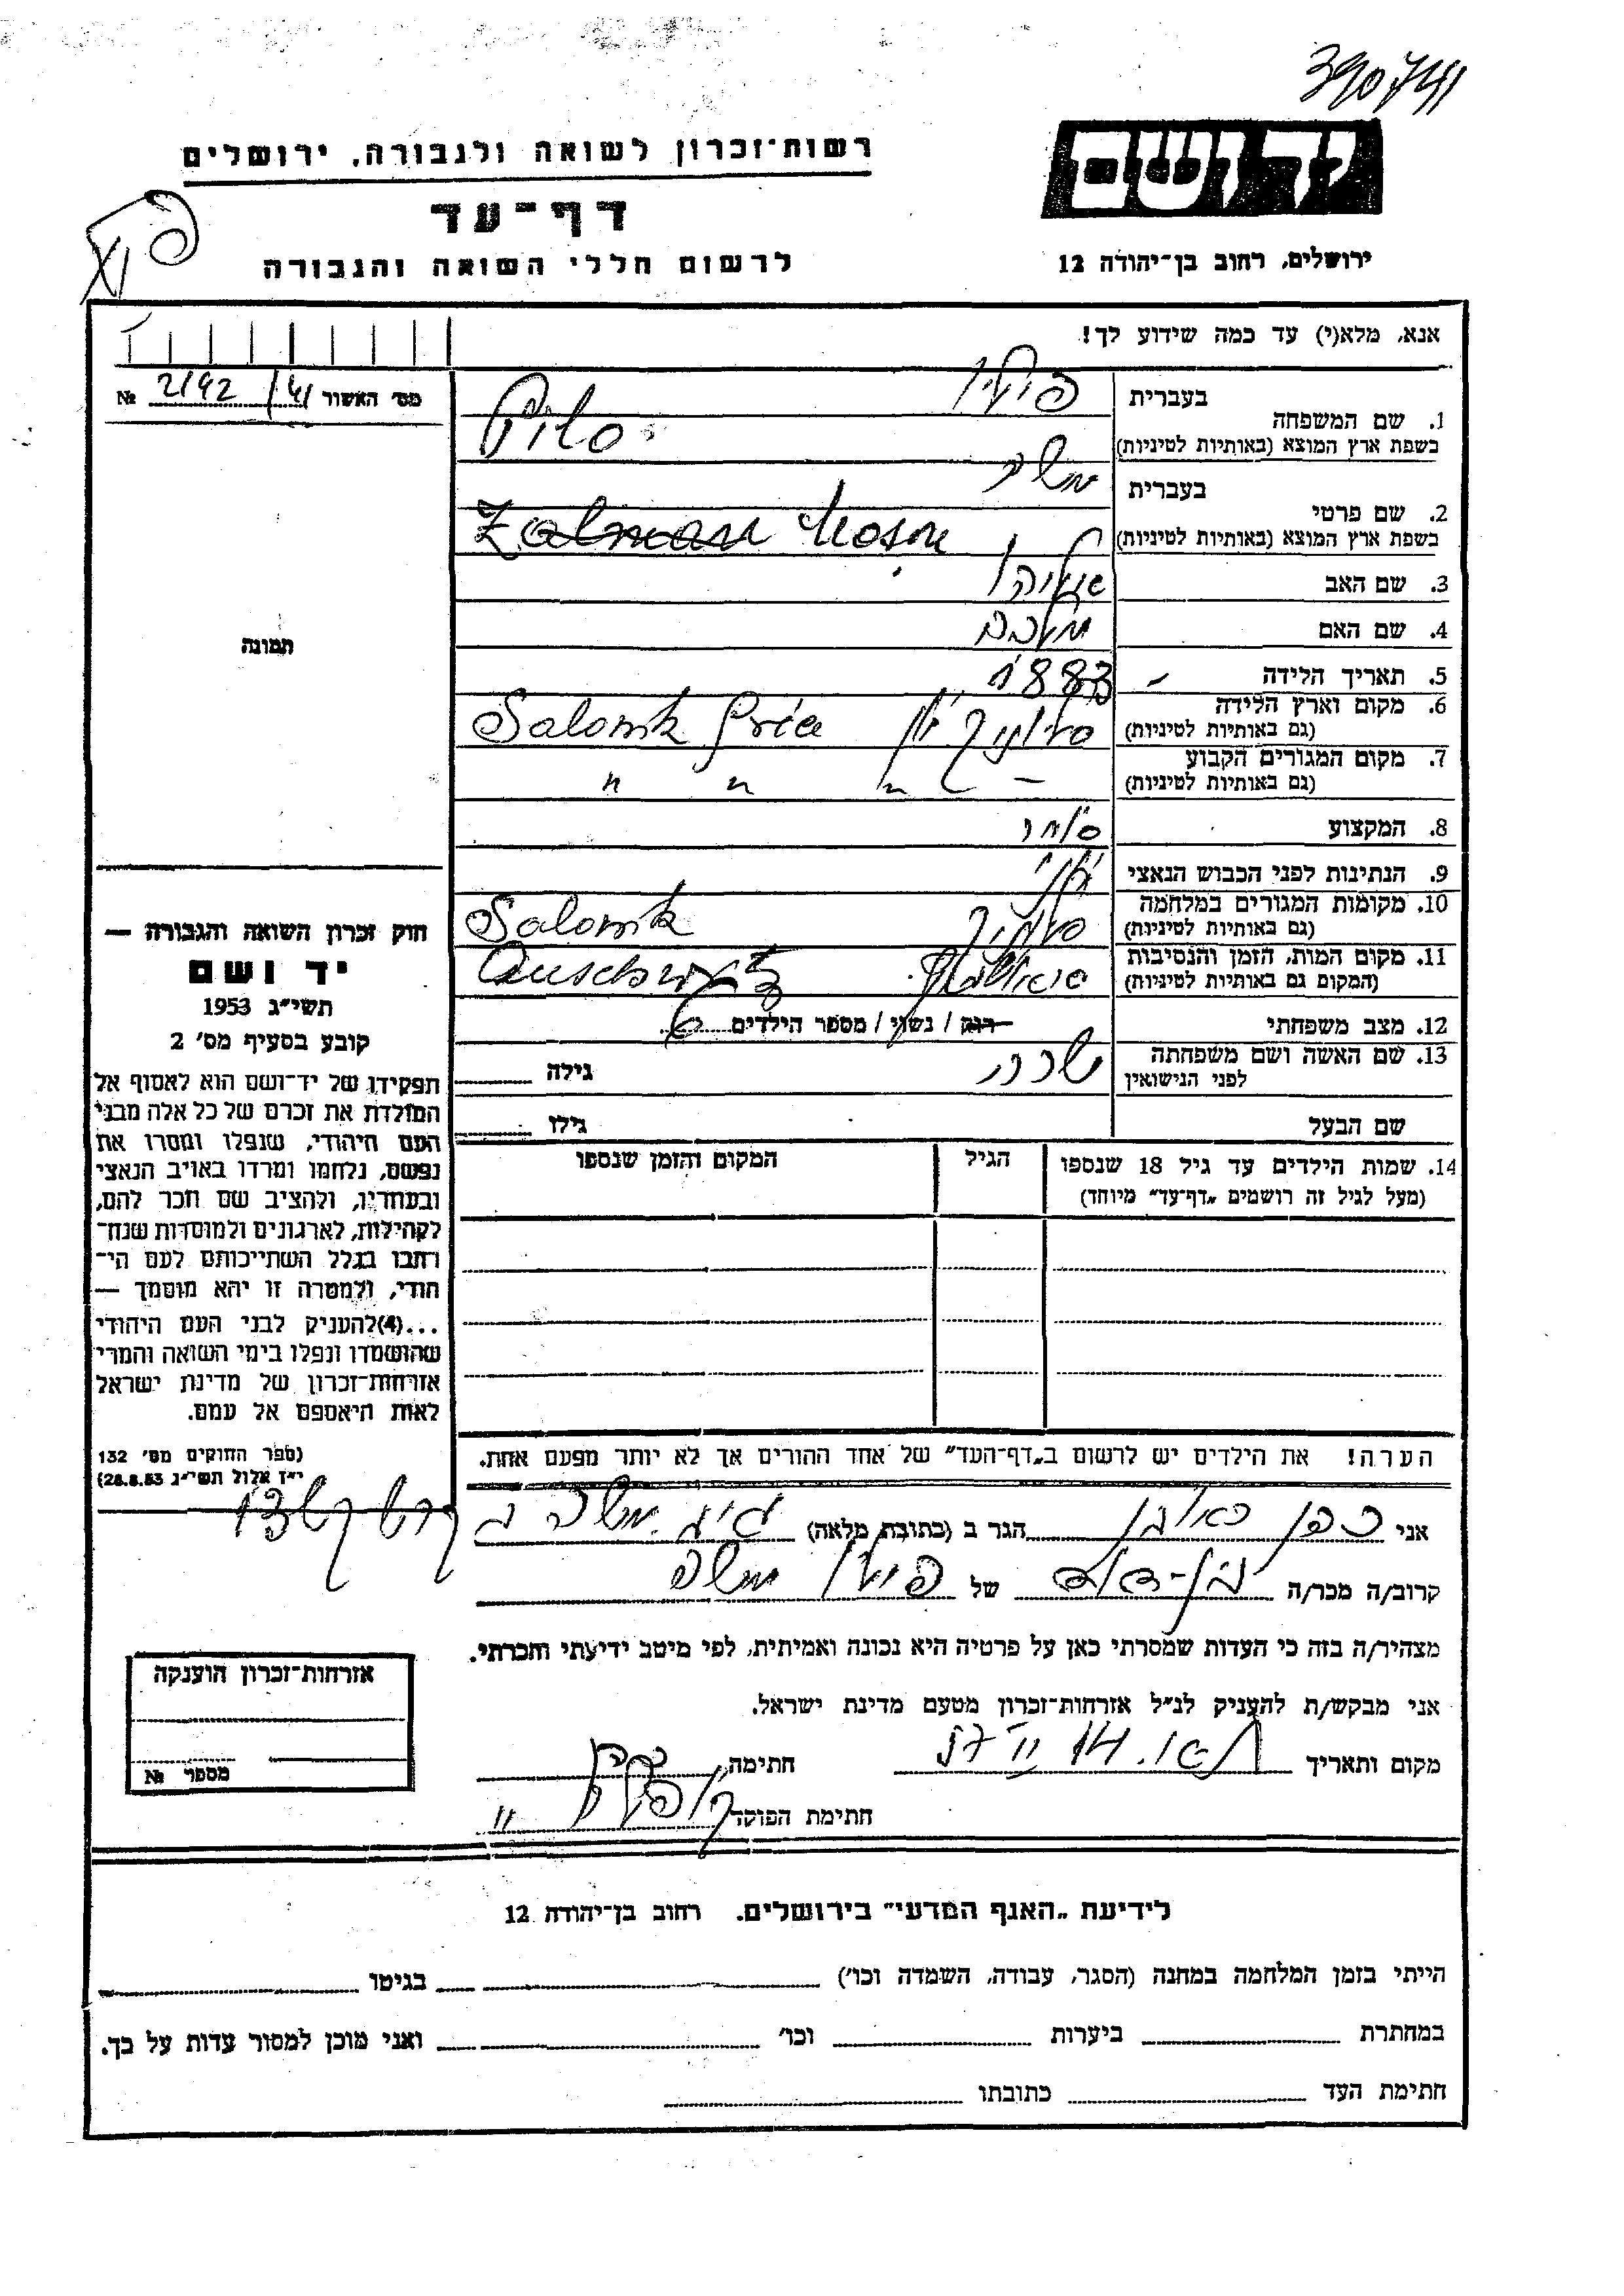 390741
יד ושם
רשות־זכרון לשואה ולגבורה, ירושלים
דף־עד
לרשום חללי השואה והגבורה
ירושלים, רחוב בן־יהודה 12
אנא, מלא(י) עד כמה שידוע לך!
מס׳ האשור № 2192/41
1. שם המשפחה
בעברית
בשפת ארץ המוצא (באותיות לטיניות)
2. שם פרטי
בעברית משה
בשפת ארץ המוצא (באותיות לטיניות) Zalman
3. שם האב אליהו
4. שם האם מלכה
5. תאריך הלידה - 1883
6. מקום וארץ הלידה
(גם באותיות לטיניות) סלוניק יון Salonik
7. מקום המגורים הקבוע
(גם באותיות לטיניות) - " " " "
8. המקצוע סוחר
9. הנתינות לפני הכבוש הנאצי יוני
10. מקומות המגורים במלחמה
(גם באותיות לטיניות) סלוניק Salonik
11. מקום המות, הזמן והנסיבות
(המקום גם באותיות לטיניות) Auschwitz
12. מצב משפחתי רוק / נשוי / מספר הילדים 6
13. שם האשה ושם משפחתה
לפני הנישואין שרה גילה
שם הבעל גילו
14. שמות הילדים עד גיל 18 שנספו
(מעל לגיל זה רושמים „דף־עד״ מיוחד)
הגיל
המקום והזמן שנספו
הערה! את הילדים יש לרשום ב„דף־העד״ של אחד ההורים אך לא יותר מפעם אחת.
תמונה
חוק זכרון השואה והגבורה —
יד ושם
תשי״ג 1953
קובע בסעיף מס׳ 2
תפקידו של יד־ושם הוא לאסוף אל
המולדת את זכרם של כל אלה מבני
העם היהודי, שנפלו ומסרו את
נפשם, נלחמו ומרדו באויב הנאצי
ובעוזריו, ולהציב שם וזכר להם,
לקהילות, לארגונים ולמוסדות שנח־
רבו בגלל השתייכותם לעם הי־
הודי, ולמטרה זו יהא מוסמך —
...(4)להעניק לבני העם היהודי
שהושמדו ונפלו בימי השואה והמרי
אזרחות־זכרון של מדינת ישראל
לאות היאספם אל עמם.
(ספר החוקים מס׳ 132
י״ז אלול תשי״ג 28.8.53)
אני כהן ראובן הגר ב (כתובת מלאה)
קרוב/ה מכר/ה בן-דוד של משה
מצהיר/ה בזה כי העדות שמסרתי כאן על פרטיה היא נכונה ואמיתית, לפי מיטב ידיעתי והכרתי.
אני מבקש/ת להעניק לנ״ל אזרחות־זכרון מטעם מדינת ישראל.
מקום ותאריך חתימה
חתימת הפוקד
אזרחות־זכרון הוענקה
מספר №
לידיעת „האגף המדעי״ בירושלים. רחוב בן־יהודה 12
הייתי בזמן המלחמה במחנה (הסגר, עבודה, השמדה וכו׳) בגיטו
במחתרת ביערות וכו׳ ואני מוכן למסור עדות על כך.
חתימת העד כתובתו